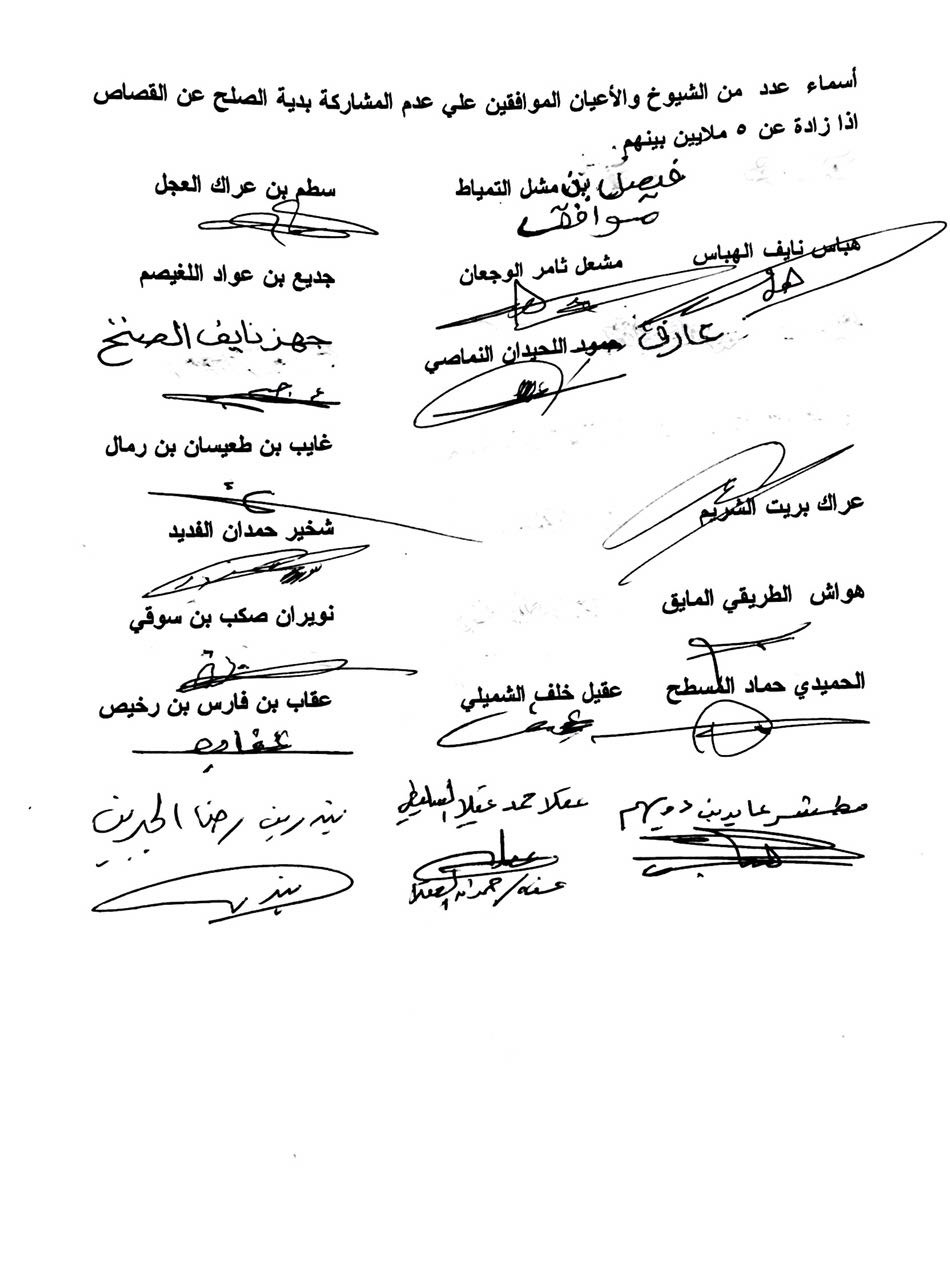 أسماء عدد من الشيوخ والأعيان الموافقين علي عدم المشاركة بدية الصلح عن القصاص
اذا زادة عن ٥ ملايين بينهم .
فيصل بن مشل التمياط
سطم بن عراك العجل
موافق
هباس نايف الهباس
مشعل ثامر الوجعان
جديع بن عواد اللغيصم
عارف حمود اللحيدان النماصي
جهز نايف
غايب بن طعيسان بن رمال
عراك بريت الشريم
شخير حمدان الفديد
هواش الطريقي المايق
نويران صكب بن سوقي
الحميدي حماد المسطح
عقيل خلف الشميلي
عقاب بن فارس بن رخيص
عقاب
عقلا حمد عقلا
بندر بن رضا